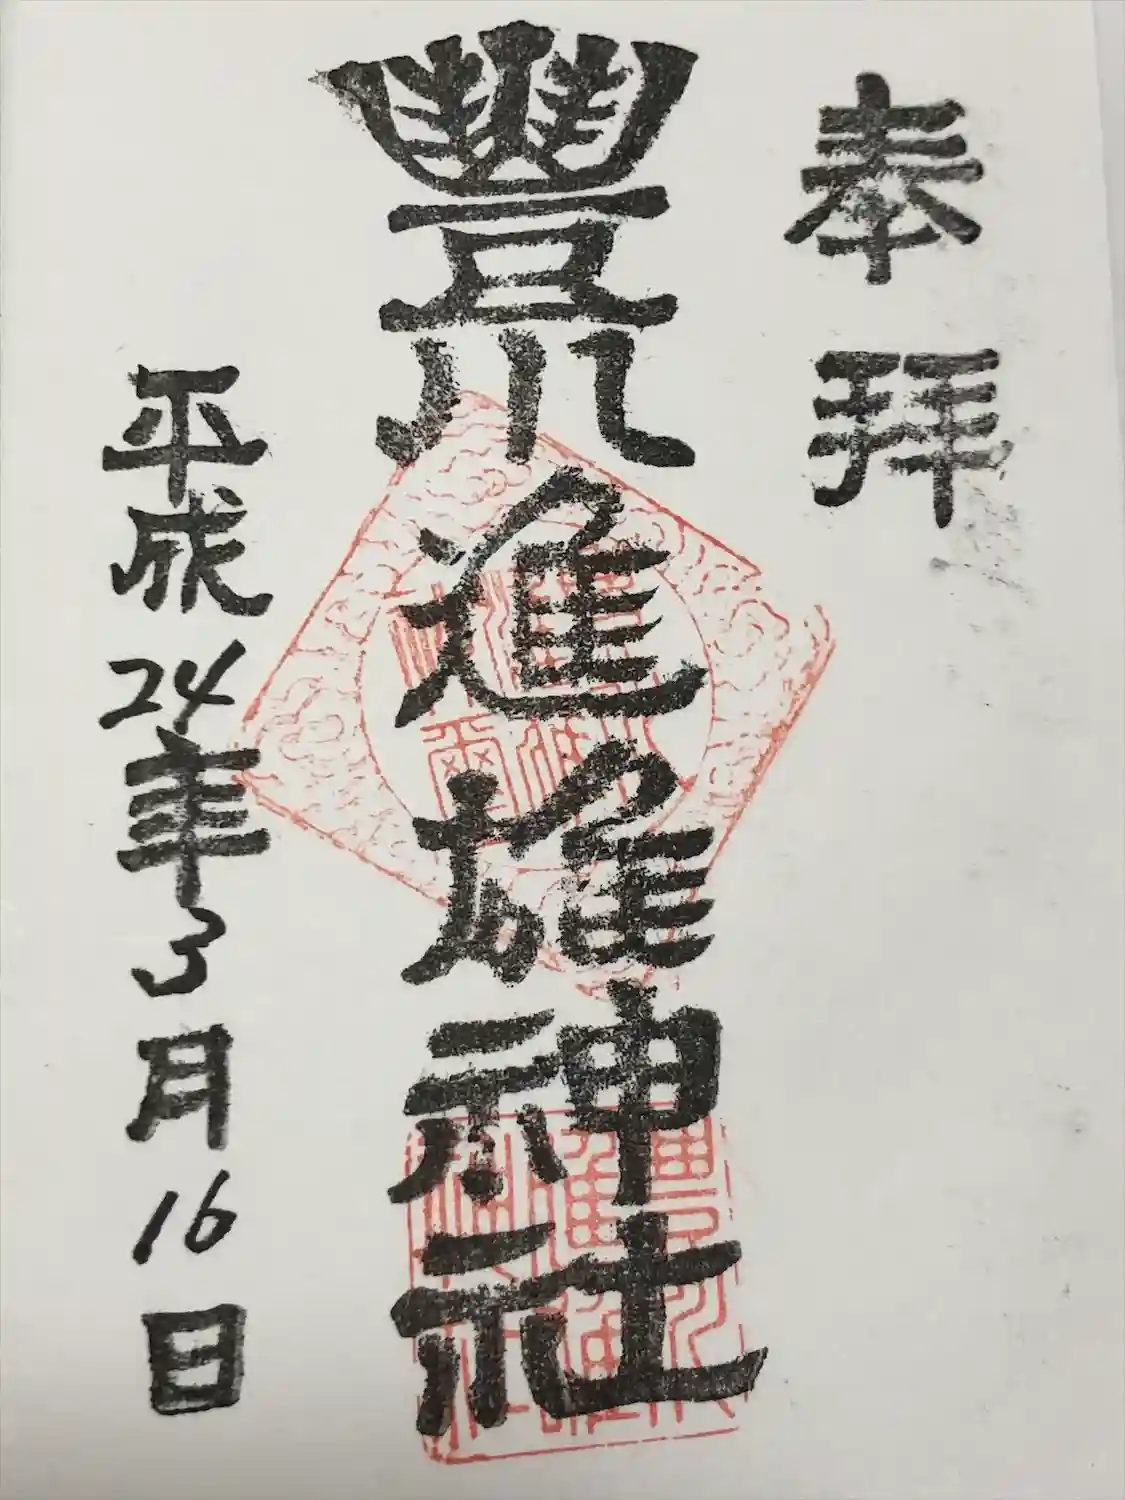 奉拜
豐川進雄神社
平成24年3月16日